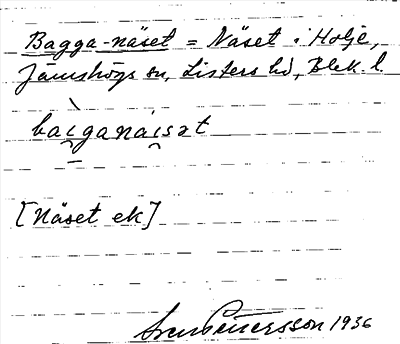 Bagga-näset = Näset. Holje,
Jämshögs sn, Listers hd, Blek. l.
baiganaisət
[Näset ek]
Sven Pettersson 1936